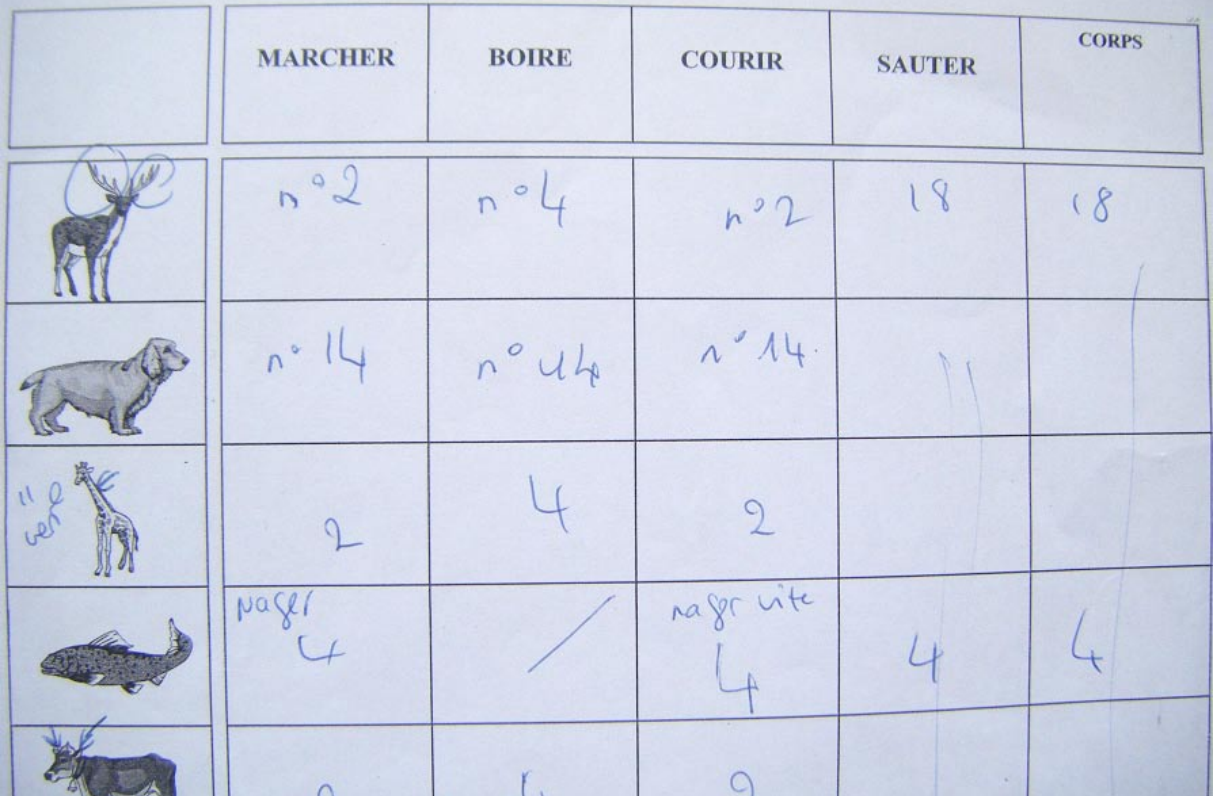 MARCHER BOIRE COURIR SAUTER CORPS
n°2 n°4 n°2 18 18
n° 14 n° 14 n° 14.
2 4 2
nager nager vite
4 / 4 4 4